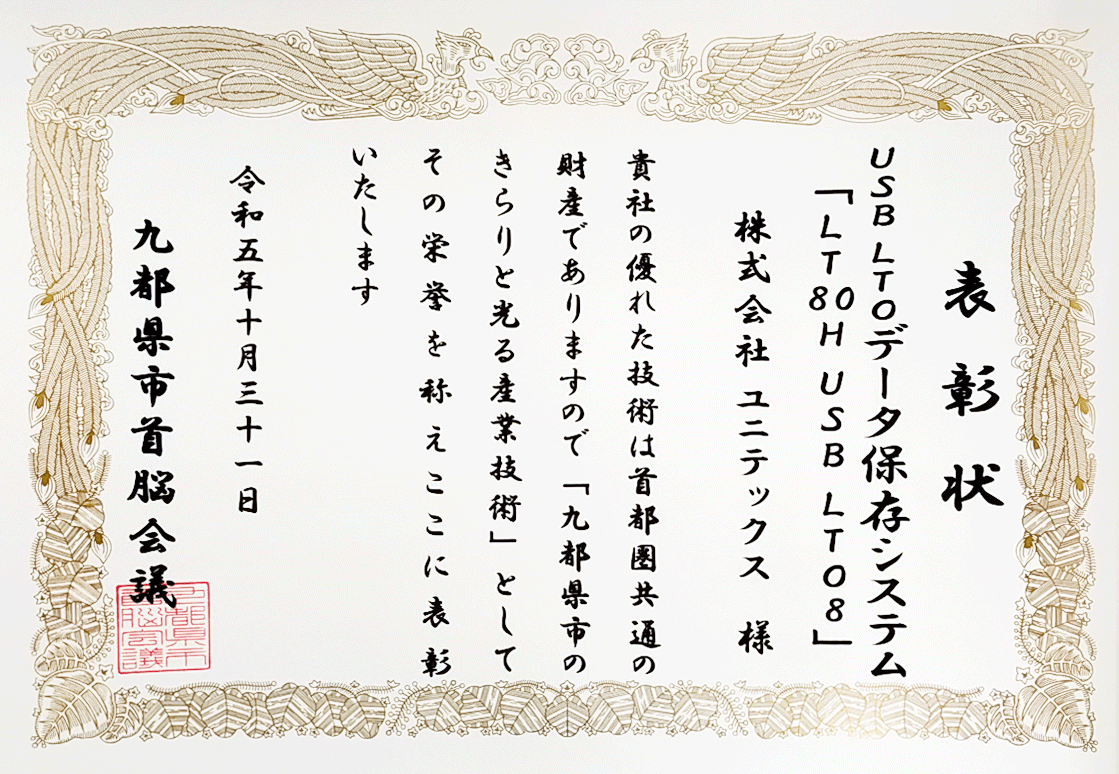 表彰状
USB LTOデータ保存システム
「LT80H USB LTO8」
株式会社 ユニテックス 様
貴社の優れた技術は首都圏共通の
財産でありますので「九都県市の
きらりと光る産業技術」として
その栄誉を称えここに表彰
いたします
令和五年十月三十一日
九都県市首脳会議
九都県市
首脳会議